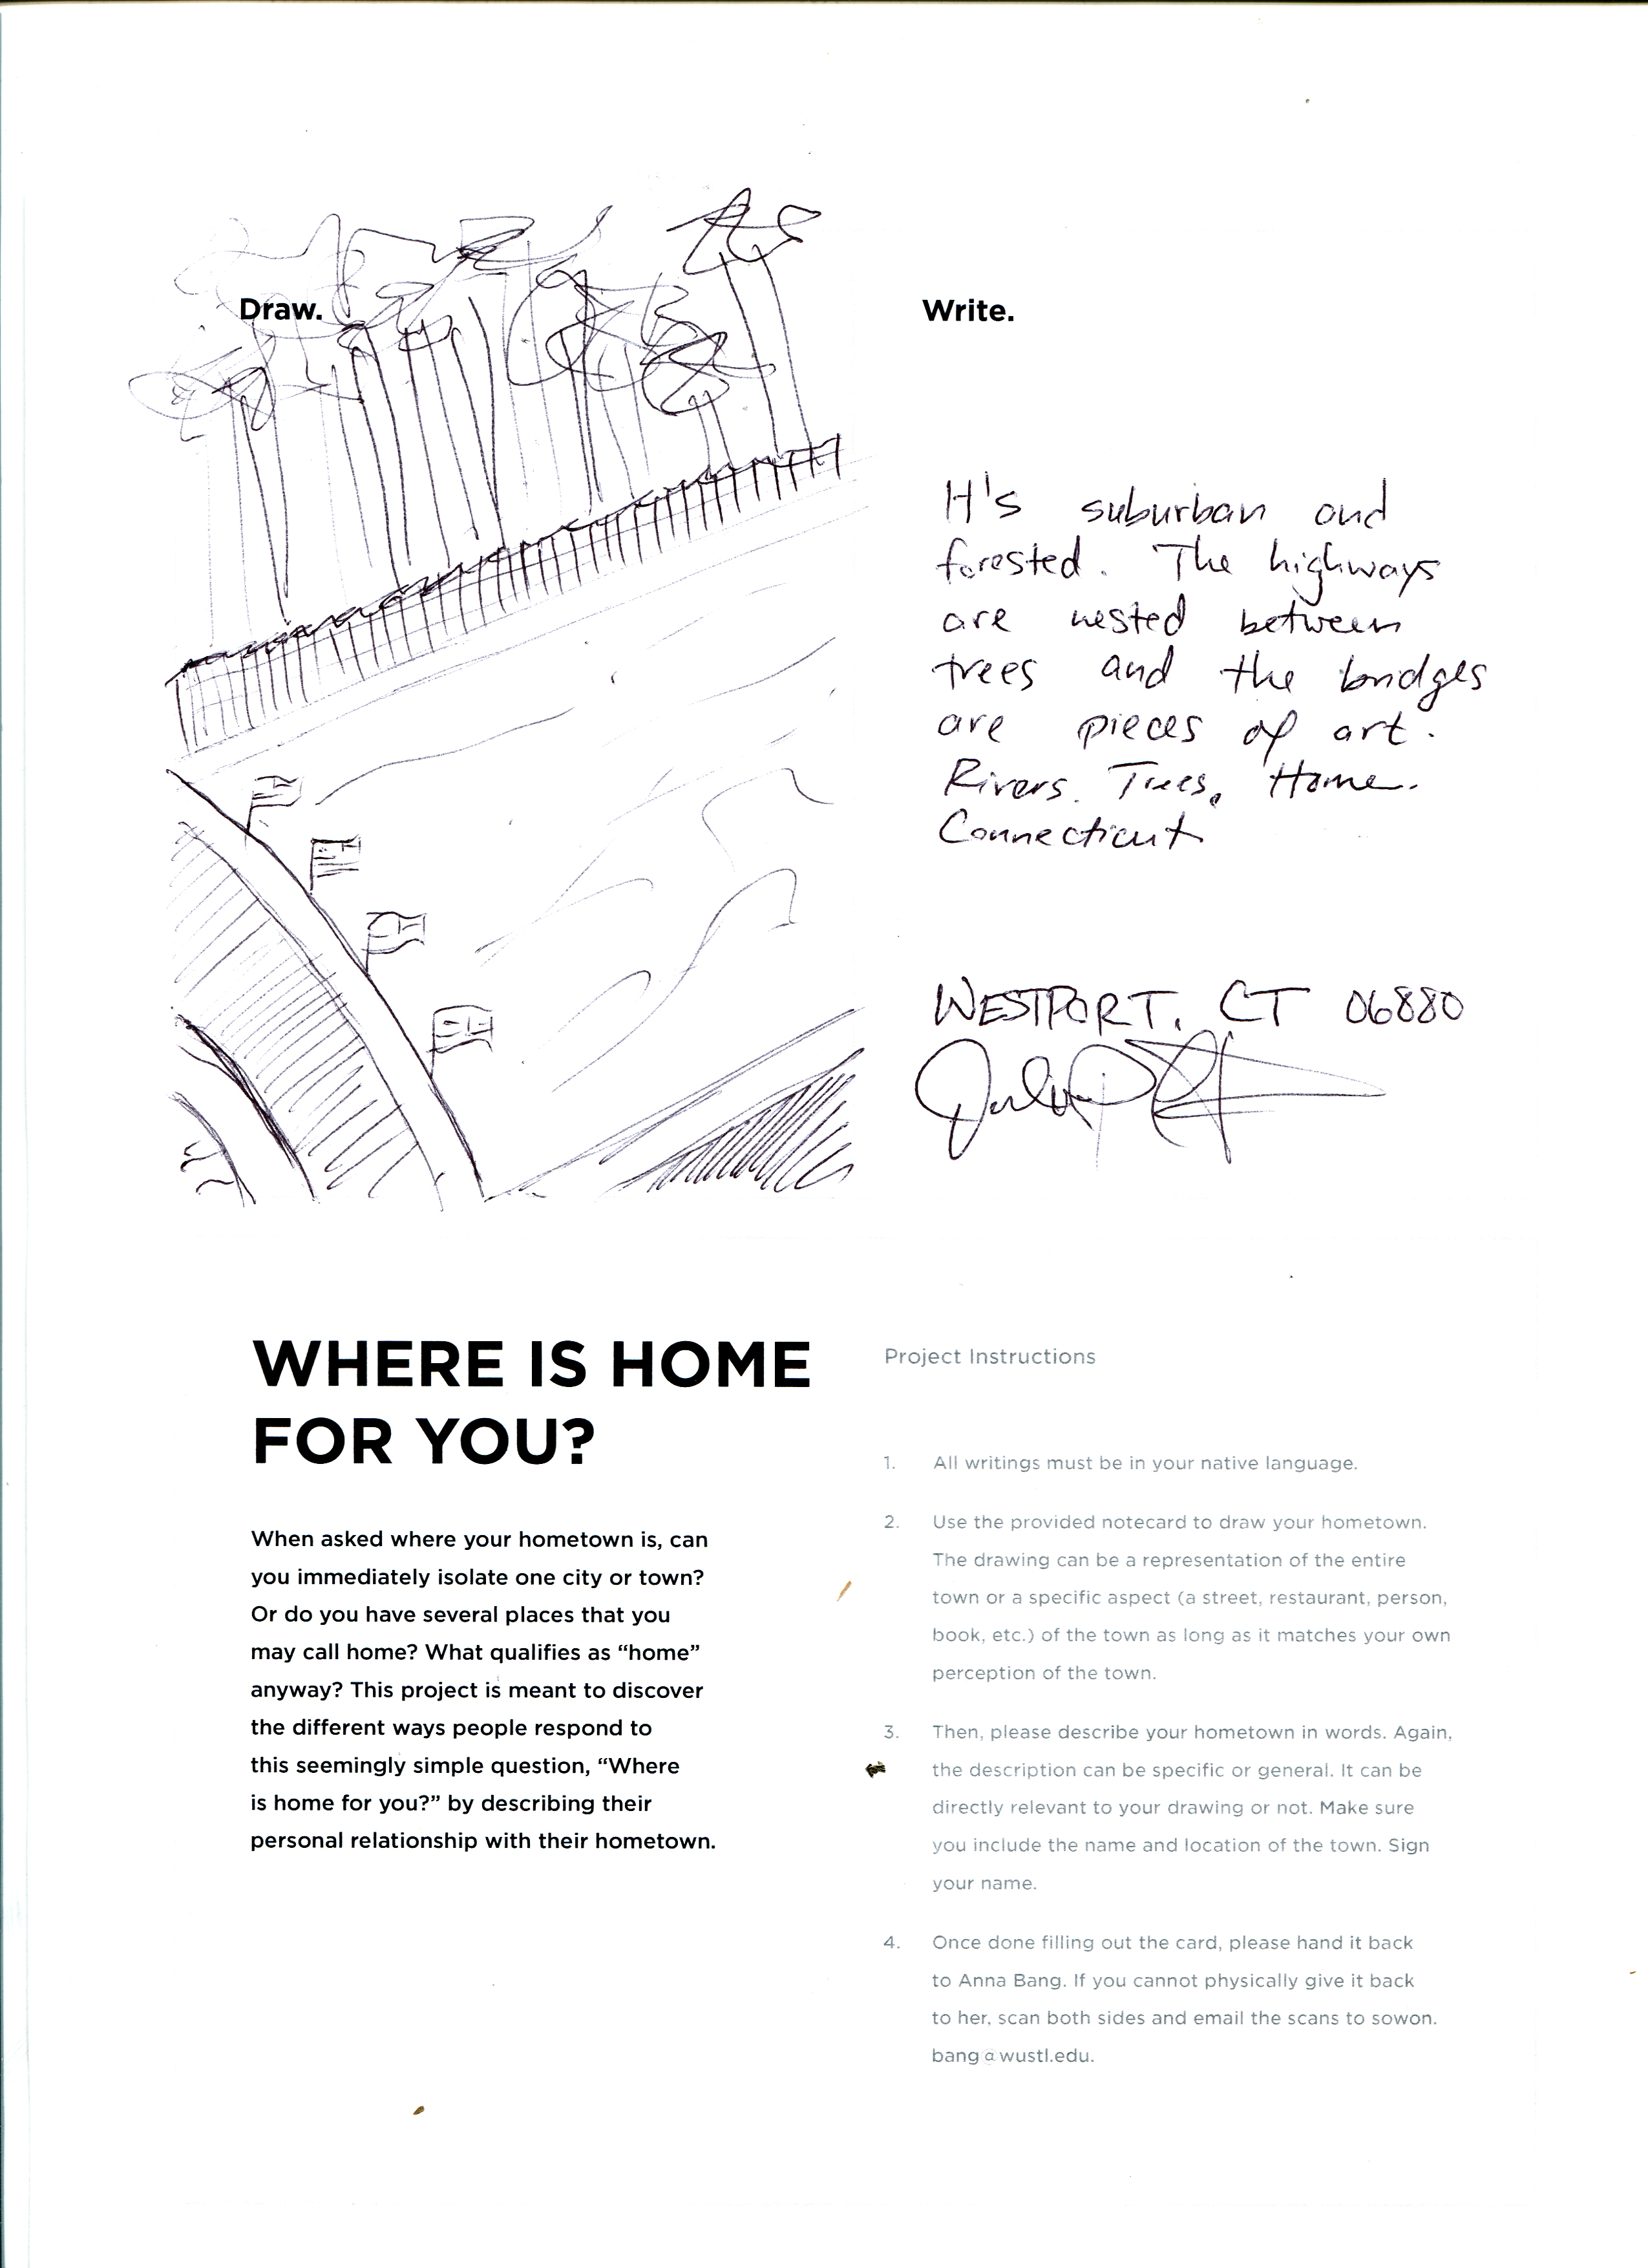 Draw.
Write.
It's suburban and
forested. The highways
are nested between
trees and the bridges
are pieces of art.
Rivers. Trees. Home.
Connecticut
WESTPORT, CT 06880
WHERE IS HOME
FOR YOU?
When asked where your hometown is, can
you immediately isolate one city or town?
Or do you have several places that you
may call home? What qualifies as “home”
anyway? This project is meant to discover
the different ways people respond to
this seemingly simple question, “Where
is home for you?” by describing their
personal relationship with their hometown.
Project Instructions
1. All writings must be in your native language.
2. Use the provided notecard to draw your hometown.
The drawing can be a representation of the entire
town or a specific aspect (a street, restaurant, person,
book, etc.) of the town as long as it matches your own
perception of the town.
3. Then, please describe your hometown in words. Again,
the description can be specific or general. It can be
directly relevant to your drawing or not. Make sure
you include the name and location of the town. Sign
your name.
4. Once done filling out the card, please hand it back
to Anna Bang. If you cannot physically give it back
to her, scan both sides and email the scans to sowon.
bang@wustl.edu.